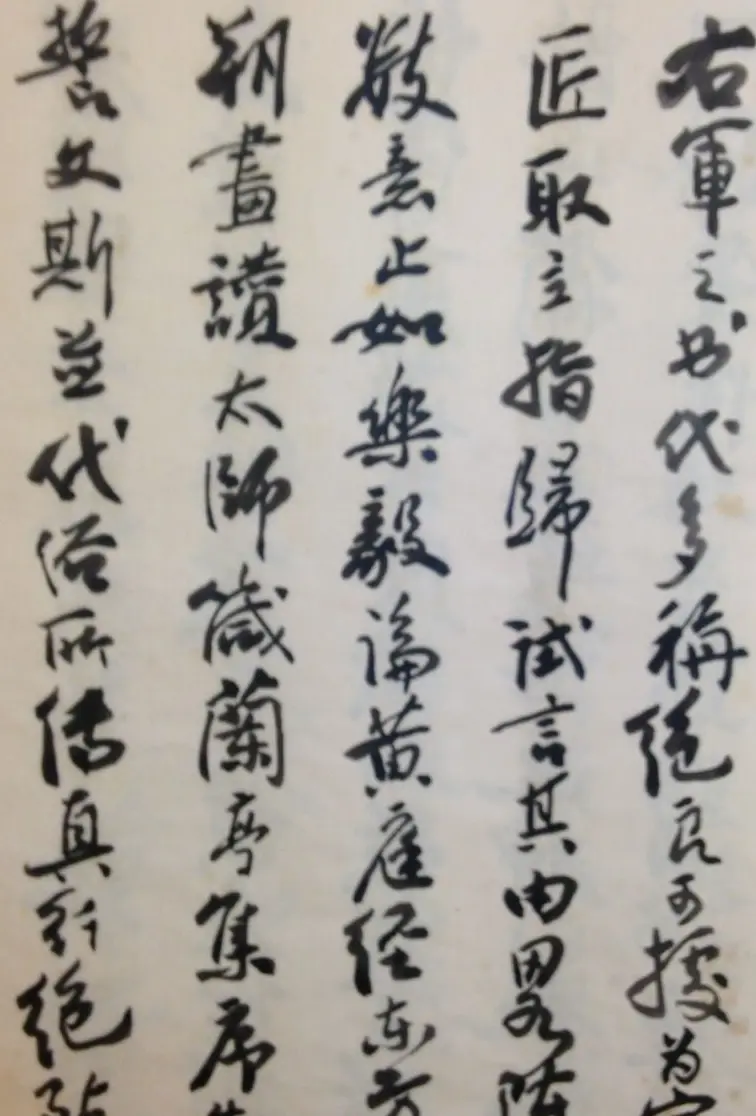 右軍之书代多稱絕良可據为宗
匠取立指歸試言其由畧陳
數意止如樂毅論黃庭经東方
朔畫讚太師箴蘭亭集序告
誓文斯並代俗所傳真行絕致